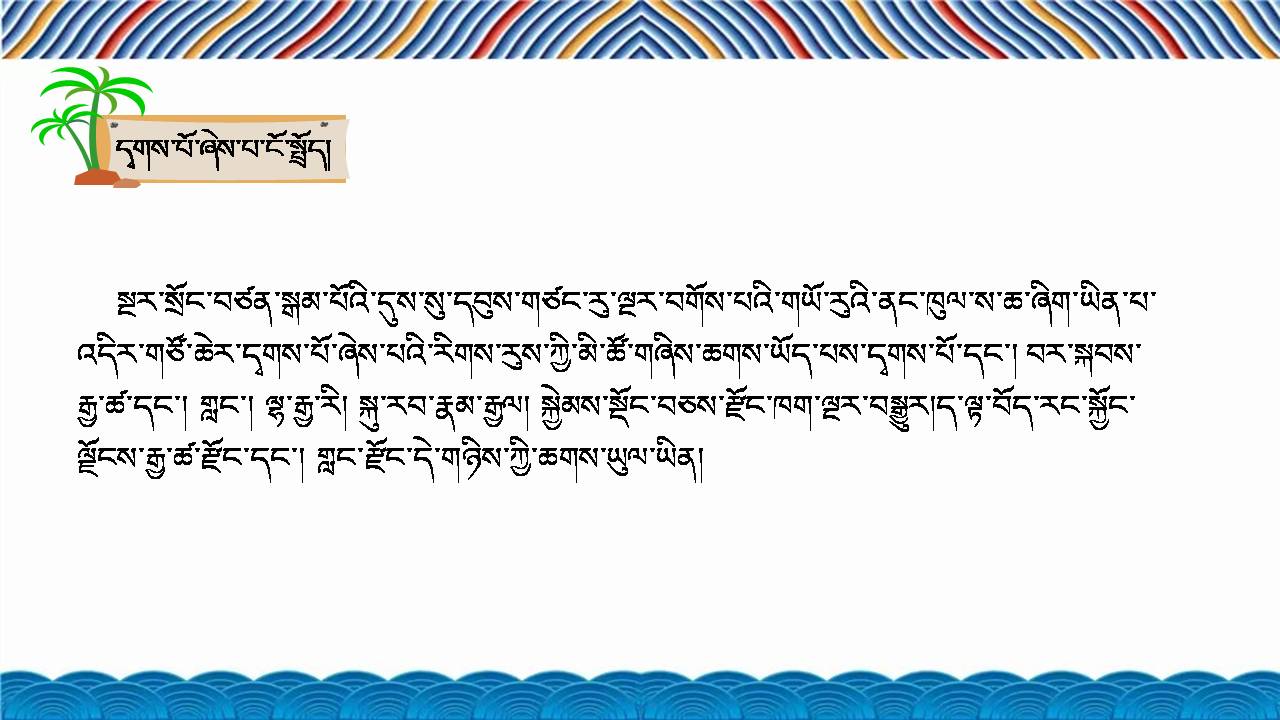 དྭགས་པོ་ཞེས་པ་ངོ་སྤྲོད།
སྔར་སྲོང་བཙན་སྒམ་པོའི་དུས་སུ་དབུས་གཙང་རུ་ལྔར་བགོས་པའི་གཡོ་རུའི་ནང་ཁུལ་ས་ཆ་ཞིག་ཡིན་པ་
འདིར་གཙོ་ཆེར་དྭགས་པོ་ཞེས་པའི་རིགས་རུས་ཀྱི་མི་ཚོ་གཞིས་ཆགས་ཡོད་པས་དྭགས་པོ་དང་། བར་སྐབས་
རྒྱ་ཚ་དང་། གླང་། ལྷ་རྒྱ་རི། སྐུ་རབ་རྣམ་རྒྱལ། སྐྱེམས་སྟོང་བཅས་རྫོང་ཁག་ལྔར་བསྒྱུར།ད་ལྟ་བོད་རང་སྐྱོང་
ལྗོངས་རྒྱ་ཚ་རྫོང་དང་། གླང་རྫོང་དེ་གཉིས་ཀྱི་ཆགས་ཡུལ་ཡིན།